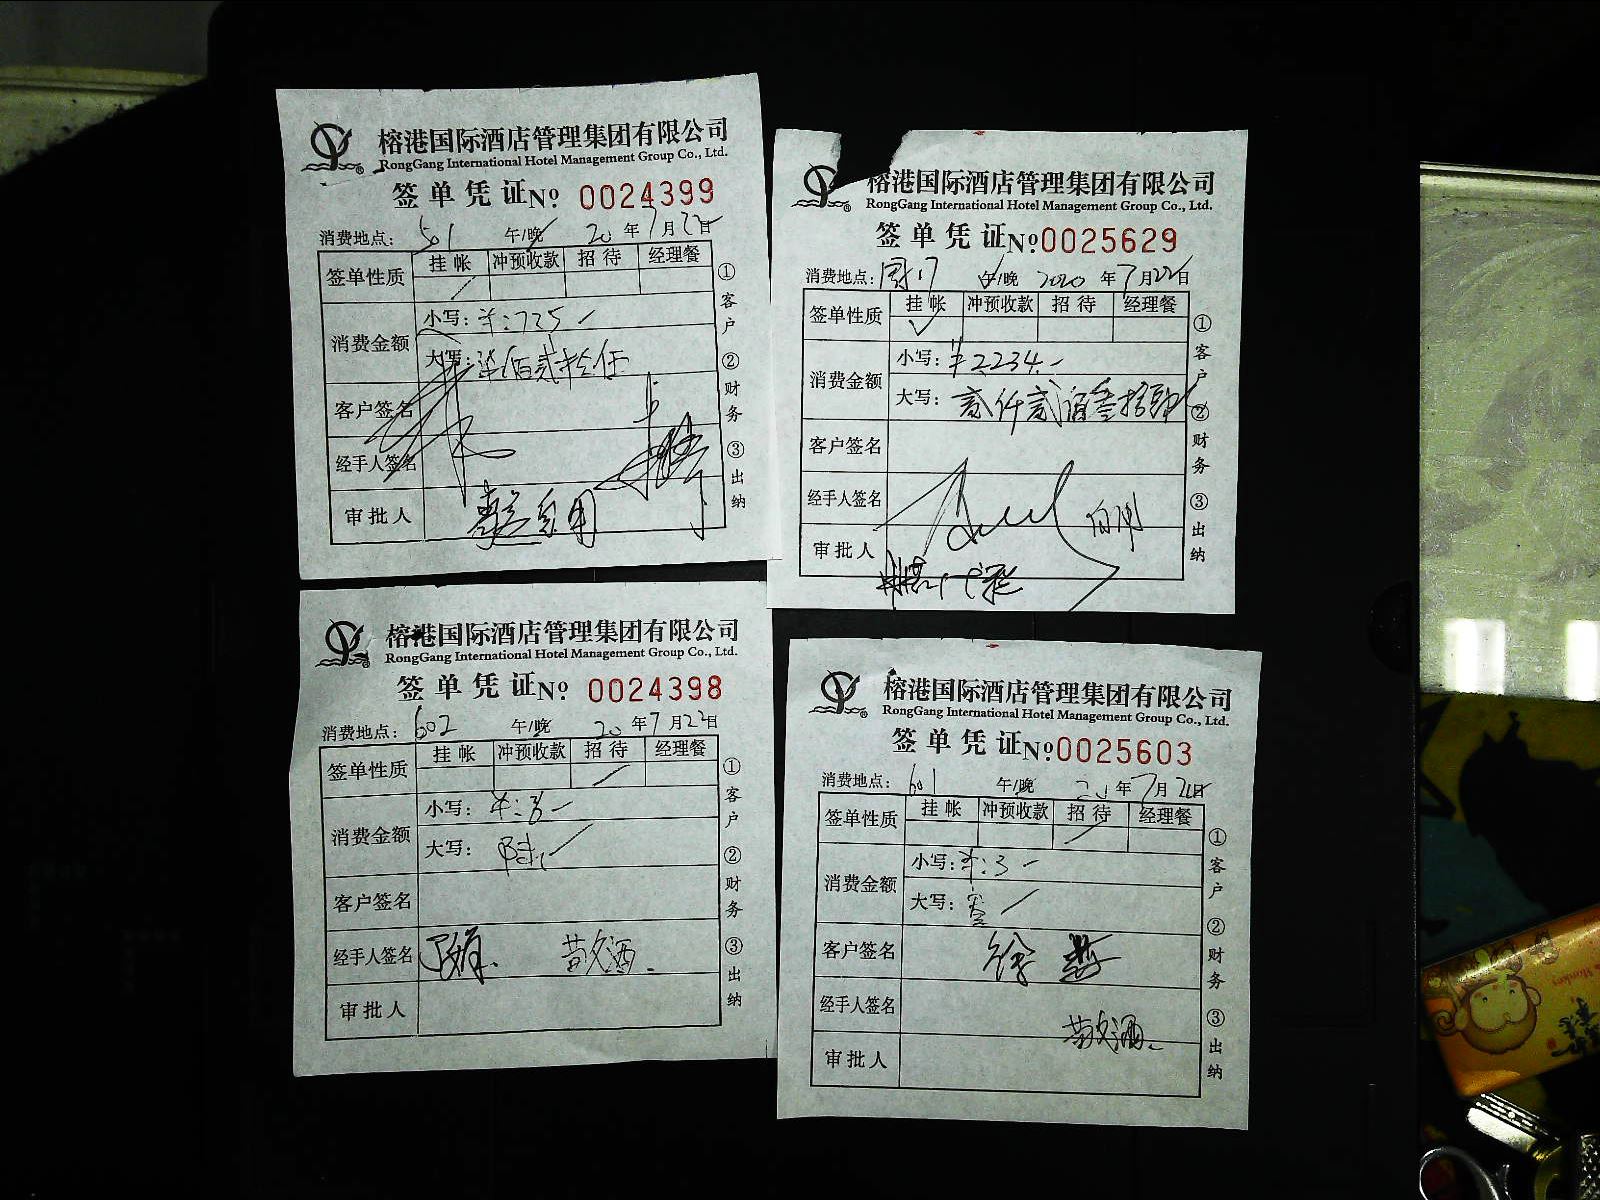 榕港国际酒店管理集团有限公司
RongGang International Hotel Management Group Co., Ltd.
签单凭证 No 0024399
消费地点: 501 午/晚 20年7月22日
签单性质 挂帐 冲预收款 招待 经理餐
消费金额
小写: ¥:725
大写: 柒佰贰拾伍
客户签名
经手人签名
审批人
①客户 ②财务 ③出纳
榕港国际酒店管理集团有限公司
RongGang International Hotel Management Group Co., Ltd.
签单凭证 No 0025629
消费地点: 午/晚 2020年7月22日
签单性质 挂帐 冲预收款 招待 经理餐
消费金额
小写: ¥2234.-
大写: 贰仟贰佰叁拾肆
客户签名
经手人签名
审批人
①客户 ②财务 ③出纳
榕港国际酒店管理集团有限公司
RongGang International Hotel Management Group Co., Ltd.
签单凭证 No 0024398
消费地点: 602 午/晚 20年7月22日
签单性质 挂帐 冲预收款 招待 经理餐
消费金额
小写:
大写:
客户签名
经手人签名
审批人
①客户 ②财务 ③出纳
榕港国际酒店管理集团有限公司
RongGang International Hotel Management Group Co., Ltd.
签单凭证 No 0025603
消费地点: 601 午/晚 20年7月日
签单性质 挂帐 冲预收款 招待 经理餐
消费金额
小写: ¥:3
大写:
客户签名 徐
经手人签名
审批人
①客户 ②财务 ③出纳
Monkey